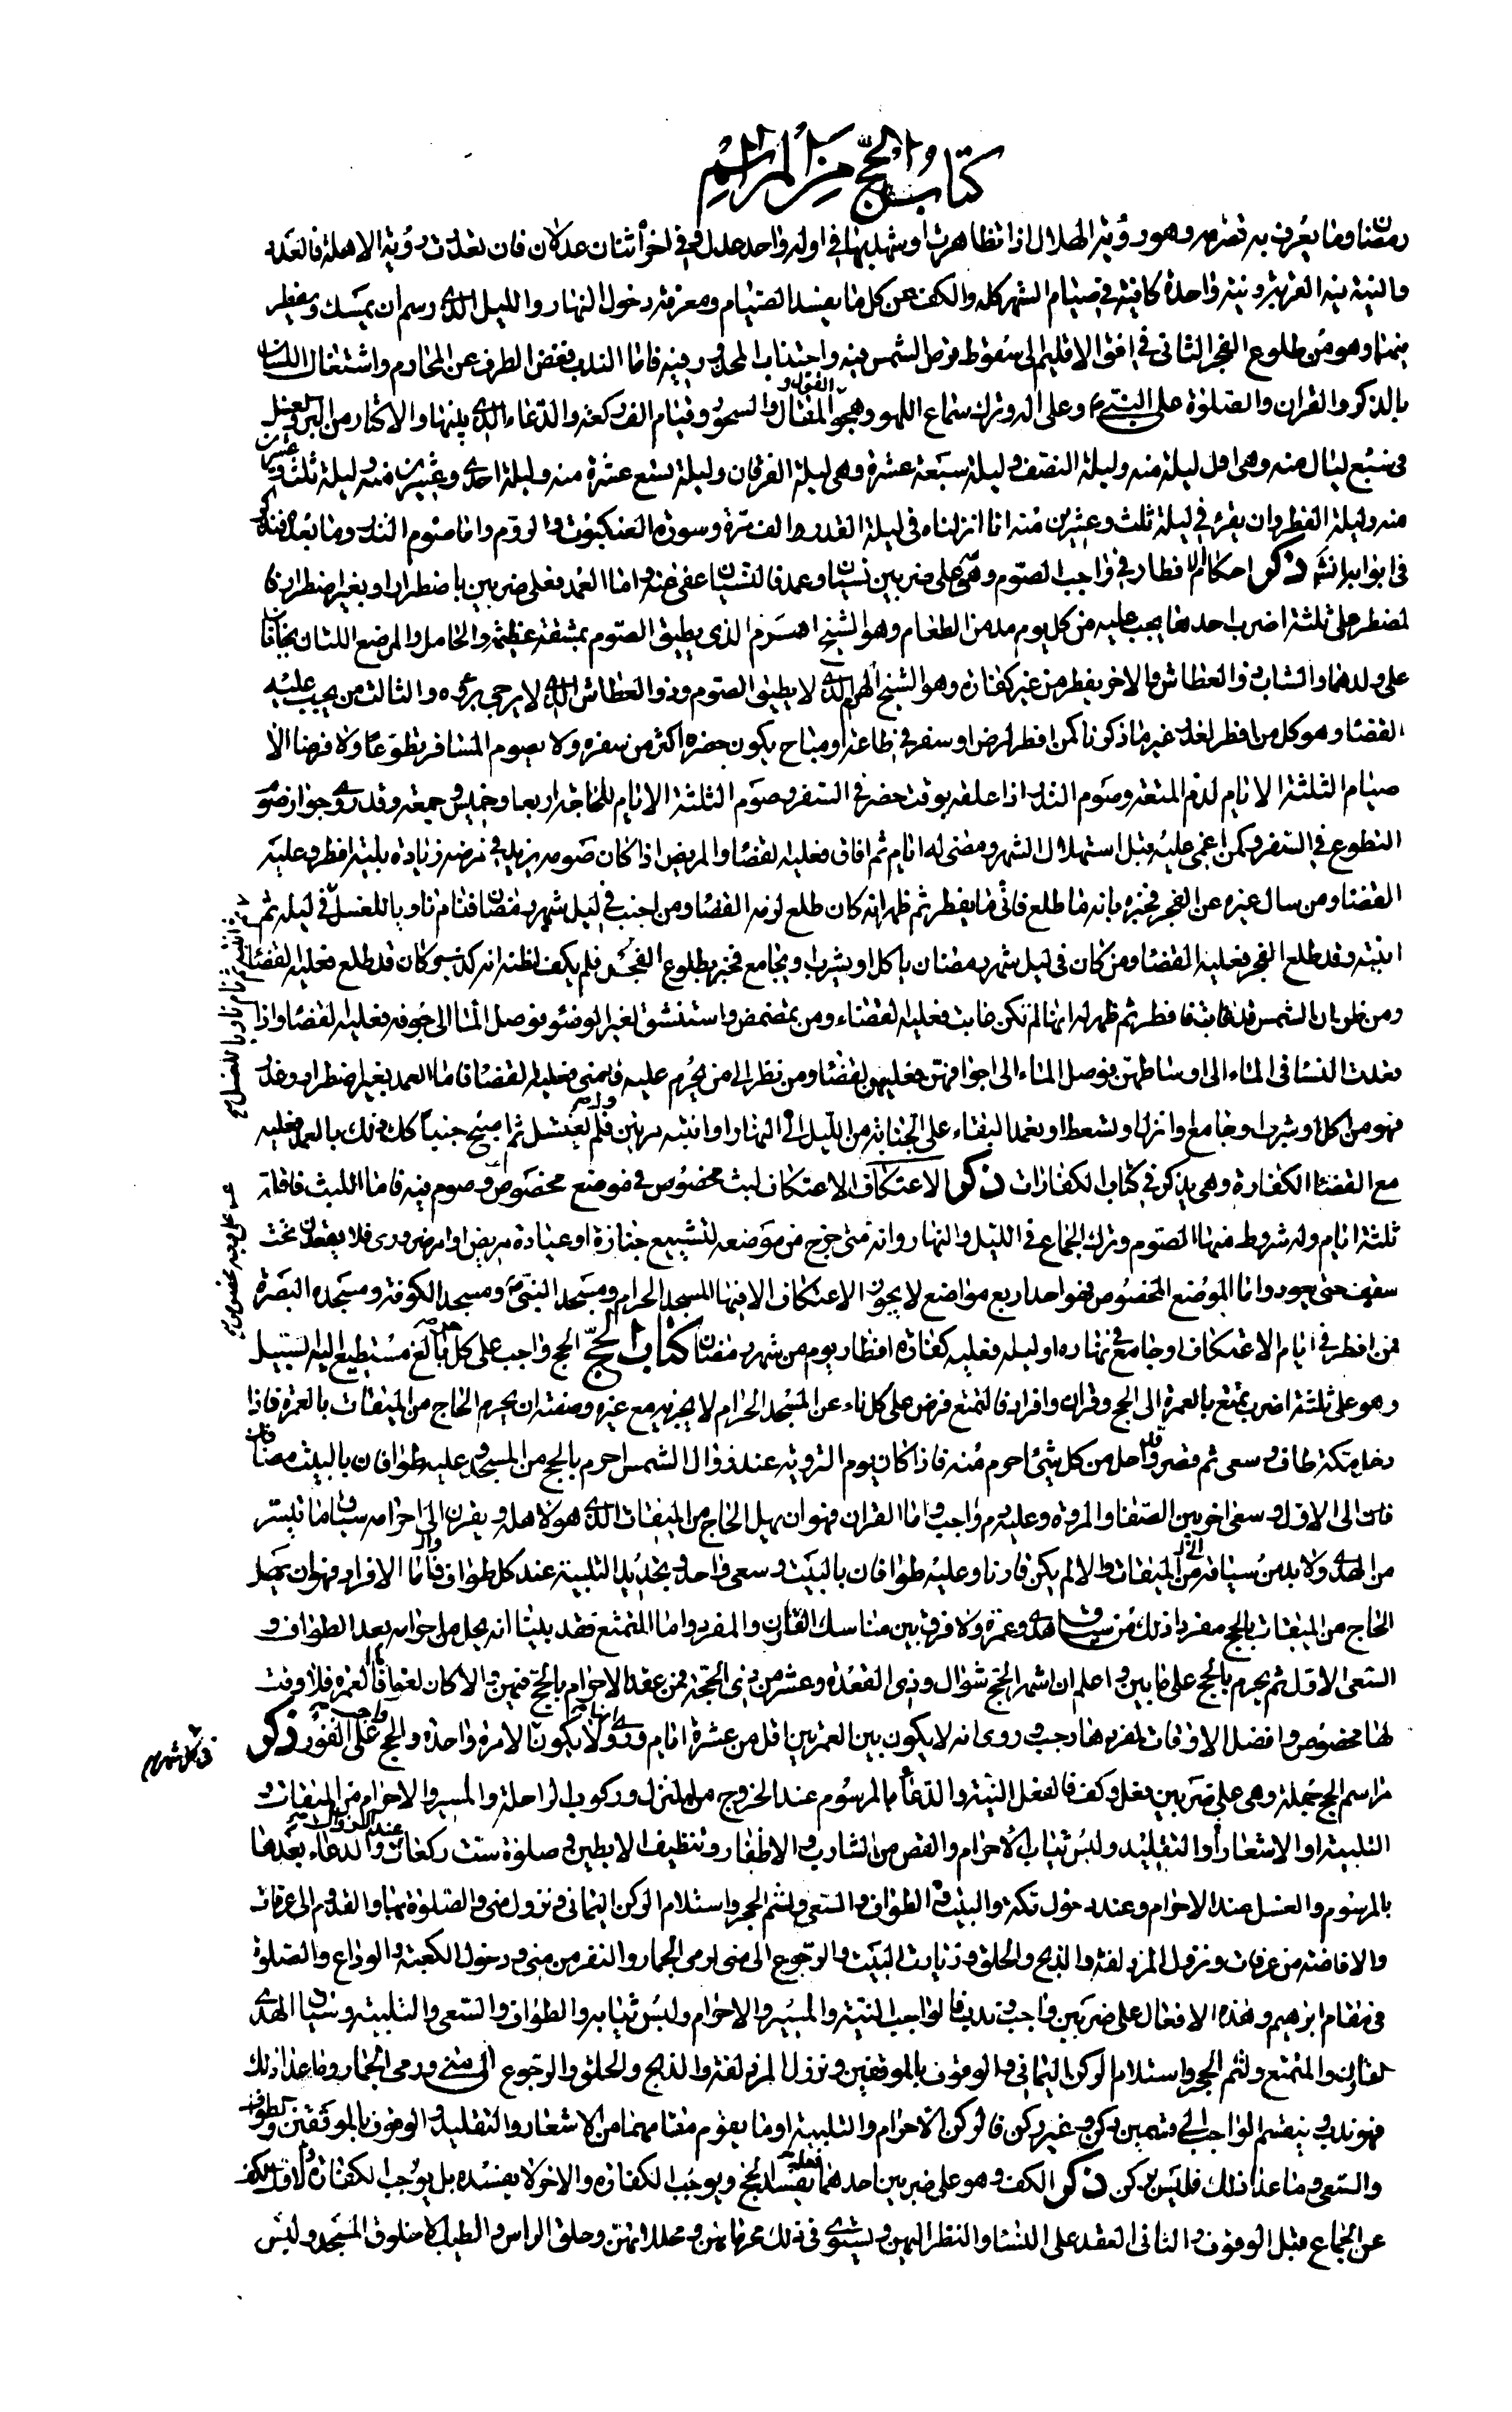 كتاب الحج من المراسم
رمضان وما يعرف به تصرمه وهو رؤية الهلال اذا تظاهرت او شهد بها في اوله واحد عدل وفي اخره اثنان عدلان فان تعذرت رؤية الاهلة فالعدد
والنية نية القربة ونية واحدة كافية في صيام الشهر كله والكف عن كل ما يفسد الصيام ومعرفة دخول النهار والليل الذي رسم ان يمسك ويفطر
فيهما وهو من طلوع الفجر الثاني في افق الاقليم الى سقوط قرص الشمس فيه واجتناب المحذور فيه فاما الندب فغض الطرف عن المحارم واشتغال اللسان
بالذكر والقران والصلوة على النبي وعلى اله وترك سماع اللهو وهجر المقال والسحور وقيام الف ركعة والدعاء الذي بينها والاكثار من البر والغسل
في سبع ليال منه وهي اول ليلة منه وليلة النصف وليلة سبعة عشرة وهي ليلة الفرقان وليلة تسع عشرة منه وليلة احدى وعشرين منه وليلة ثلث وعشرين
منه وليلة الفطر وان يقرء في ليلة ثلث وعشرين منه انا انزلناه في ليلة القدر الف مرة وسورة العنكبوت والروم واما صوم النذر وما بعده فنذكره
في ابوابه انشاء ذكر احكام الافطار في واجب الصوم وهي على ضربين نسيان وعمد فالنسيان عفى عنه واما العمد فعلى ضربين باضطرار او بغير اضطرار فا
لمضطر على ثلثة اضرب احدها يجب عليه من كل يوم مد من الطعام وهو الشيخ الهرم الذي يطيق الصوم بمشقة عظيمة والحامل والمرضع اللتان يخافان
على ولدهما والشاب ذو العطاش والاخر يفطر من غير كفارة وهو الشيخ الهرم الذي لا يطيق الصوم وذو العطاش الذي لا يرجى برءه والثالث من يجب عليه
القضاء وهو كل من افطر لعذر غير ما ذكرنا كمن افطر لمرض او سفر في طاعة او مباح يكون حضره اكثر من سفره ولا يصوم المسافر تطوعا ولا فرضا الا
صيام الثلثة الايام لدم المتعة وصوم النذر اذا علقه بوقت حضر في السفر وصوم الثلثة الايام للحاجة اربعا وخميس وجمعة وقد روي جواز صوم
التطوع في السفر وكمن اغمي عليه قبل استهلال الشهر ومضى له ايام ثم افاق فعليه القضاء والمريض اذا كان صومه يزيد في مرضه زيادة بينة افطر وعليه
القضاء ومن سال غيره عن الفجر فخبره بانه ما طلع فاتى ما يفطر ثم ظهر انه كان طلع لزمه القضاء ومن اجنب في ليل شهر رمضان فنام ناويا للغسل في ليله ثم
انتبه وقد طلع الفجر فعليه القضاء ومن كان في ليل شهر رمضان ياكل او يشرب او يجامع فخبر بطلوع الفجر فلم يكف لظنه انه كذب وكان قد طلع فعليه القضاء
ومن ظن بان الشمس قد غابت فافطر ثم ظهر له انها لم تكن غابت فعليه القضاء ومن تمضمض واستنشق لغير الوضوء فوصل الماء الى جوفه فعليه القضاء واذا
تعدت النساء في الماء الى اوساطهن فوصل الماء الى اجوافهن فعليهن القضاء ومن نظر الى من يحرم عليه فامنى فعليه القضاء فاما العمد بغير اضطرار وعذر
فهو من اكل او شرب او جامع او انزل او تسعط او تعمد البقاء على الجنابة من الليل الى النهار او انتبه مرتين فلم يغتسل ثم اصبح جنبا كل ذلك بالعمد فعليه
مع القضاء الكفارة وهي يذكر في كتاب الكفارات ذكر الاعتكاف الاعتكاف لبث مخصوص في موضع مخصوص وصوم فيه فاما اللبث فاقله
ثلثة ايام وله شروط منها الصوم وترك الجماع في الليل والنهار وانه متى خرج من موضعه لتشييع جنازة او عيادة مريض او امر ضروري فلا يقعدن تحت
سقف حتى يعود واما الموضع المخصوص فهو احد اربع مواضع لا يجوز الاعتكاف الا فيها المسجد الحرام ومسجد النبي ومسجد الكوفة ومسجد البصرة
فمن افطر في ايام الاعتكاف او جامع في نهاره او ليله فعليه كفارة افطار يوم من شهر رمضان كتاب الحج الحج واجب على كل بالغ مستطيع اليه السبيل
وهو على ثلثة اضرب تمتع بالعمرة الى الحج وقران وافراد فالتمتع فرض على كل ناء عن المسجد الحرام لا يجزيه مع غيره وصفته ان يحرم الحاج من الميقات بالعمرة فاذا
دخل مكة طاف وسعى ثم قصر وقد احل من كل شيء احرم منه فاذا كان يوم التروية عند زوال الشمس احرم بالحج من المسجد وعليه طوافان بالبيت مضافان
الى الاول وسعى اخر بين الصفا والمروة وعليه دم واجب واما القران فهو ان يهل الحاج من الميقات الذي هو لاهله ويقرن الى احرامه سياق ما تيسر
من الهدي ولا بد من سياقه من الميقات والا لم يكن قارنا وعليه طوافان بالبيت وسعى واحد ويجدد التلبية عند كل طواف فاما الافراد فهو ان يهل
الحاج من الميقات بالحج مفردا ذلك من سياق هدي وعمرة ولا فرق بين مناسك القارن والمفرد واما المتمتع فقد بينا انه يحل من احرامه بعد الطواف و
السعى الاول ثم يحرم بالحج على ما بين واعلم ان اشهر الحج شوال وذى القعدة وعشر من ذى الحجة فمن عقد الاحرام بالحج فيهن والا كان لغوا فاما العمرة فلا وقت
لها مخصوص وافضل الاوقات لمفردها رجب وروى انه لا يكون بين العمرتين اقل من عشرة ايام وروى انها لا يكون الا مرة واحدة والحج واجب على الفور ذكر
في كل شهر مرة
مراسم الحج جملة وهي على ضربين فعل وكف فالفعل النية والدعاء المرسوم عند الخروج من المنزل وركوب الراحلة والمسير والاحرام من الميقات
التلبية او الاشعار او التقليد ولبس ثياب الاحرام والقص من الشارب والاظفار وتنظيف الابطين وصلوة ست ركعات عند الزوال والدعاء بعدها
بالمرسوم والغسل عند الاحرام وعند دخول مكة والبيت والطواف والسعى ولثم الحجر واستلام الركن اليماني ونزول منى والصلوة بها والغدو الى عرفات
والافاضة من عرفات ونزول المزدلفة والذبح والحلق وزيارت البيت والرجوع الى منى لرمى الجمار والنفر من منى ودخول الكعبة والوداع والصلوة
في مقام ابرهيم وهذه الافعال على ضربين واجب وندب فالواجب النية والمسير والاحرام ولبس ثيابه والطواف والسعى والتلبية وسياق الهدى
للقارن والمتمتع ولثم الحجر واستلام الركن اليماني والوقوف بالموقفين ونزول المزدلفة والذبح والحلق والرجوع الى منى ورمى الجمار وما عدا ذلك
فهو ندب وينقسم الواجب الى قسمين ركن وغير ركن فالركن الاحرام والتلبية او ما يقوم مقامهما من الاشعار والتقليد والوقوف بالموقفين والطواف
والسعى وما عدا ذلك فليس بركن ذكر الكف وهو على ضربين احدهما فعله يفسد الحج ويوجب الكفارة والاخر لا يفسده بل يوجب الكفارة فالاول الكف
عن الجماع قبل الوقوف والثاني العقد على النساء والنظر اليهن ويستوى في ذلك محرماتهن ومحللاتهن وحلق الراس والطيب الا خلوق المسجد ولبس